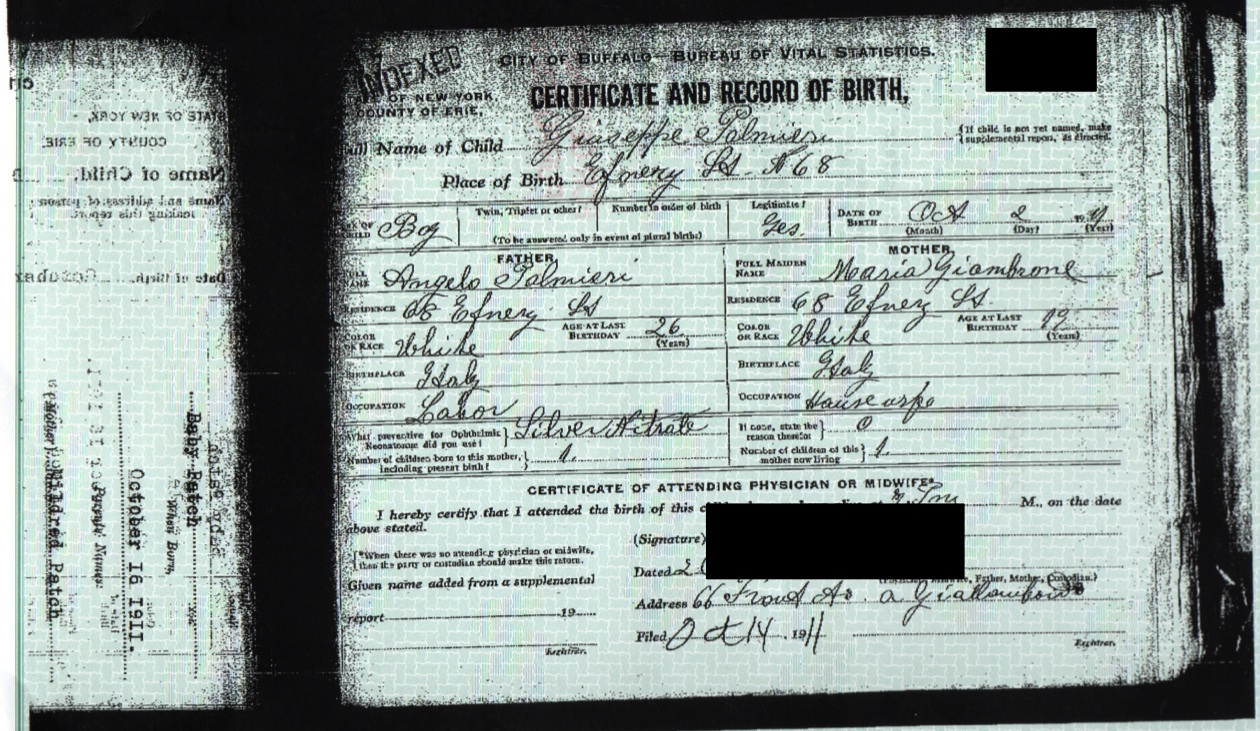 INDEXED
CITY OF BUFFALO—BUREAU OF VITAL STATISTICS.
OF NEW YORK,
COUNTY OF ERIE,
CERTIFICATE AND RECORD OF BIRTH,
Name of Child Giuseppe Palmieri
{If child is not yet named, make supplemental report, as directed.
Place of Birth Efnery St. N 68
Boy
Twin, Triplet or other?
Number in order of birth
(To be answered only in event of plural births)
Legitimate? Yes.
DATE OF BIRTH Oct 2 1911
(Month) (Day) (Year)
FATHER
MOTHER
NAME Angelo Palmieri
FULL MAIDEN NAME Maria Giambrone
RESIDENCE 68 Efnery St
RESIDENCE 68 Efnery St.
COLOR OR RACE White
AGE AT LAST BIRTHDAY 26 (Years)
COLOR OR RACE White
AGE AT LAST BIRTHDAY 19 (Years)
BIRTHPLACE Italy
BIRTHPLACE Italy
OCCUPATION Labor
OCCUPATION
What preventive for Ophthalmia Neonatorum did you use? } Silver Nitrate
If none, state the reason therefor } 0
Number of children born to this mother, including present birth? } 1.
Number of children of this mother now living } 1.
CERTIFICATE OF ATTENDING PHYSICIAN OR MIDWIFE*
I hereby certify that I attended the birth of this M., on the date
above stated.
(Signature)
{*When there was no attending physician or midwife, then the party or custodian should make this return.
Dated 2
(Physician, Midwife, Father, Mother, Custodian.)
Given name added from a supplemental
Address 66 Front Av.
report 19
Filed Oct 14, 1911
Registrar.
Registrar.
STATE OF NEW YORK,
COUNTY OF ERIE
Name of Child.
Name and address of person
making this report
Date of Birth, October
Baby Patch
When Born,
October 16 1911.
Mildred Patch